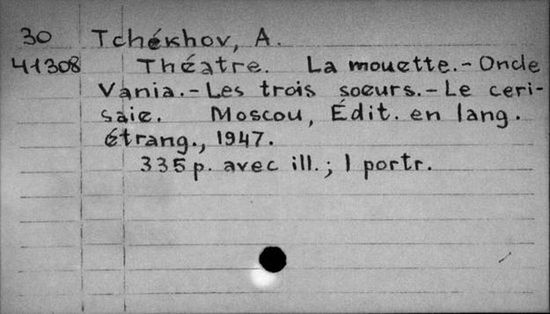 30 Tchékhov, A.
41308 Théatre. La mouette.-Oncle
Vania.-Les trois soeurs.-Le ceri-
saie. Moscou, Édit. en lang.
étrang., 1947.
335 p. avec ill.; 1 portr.